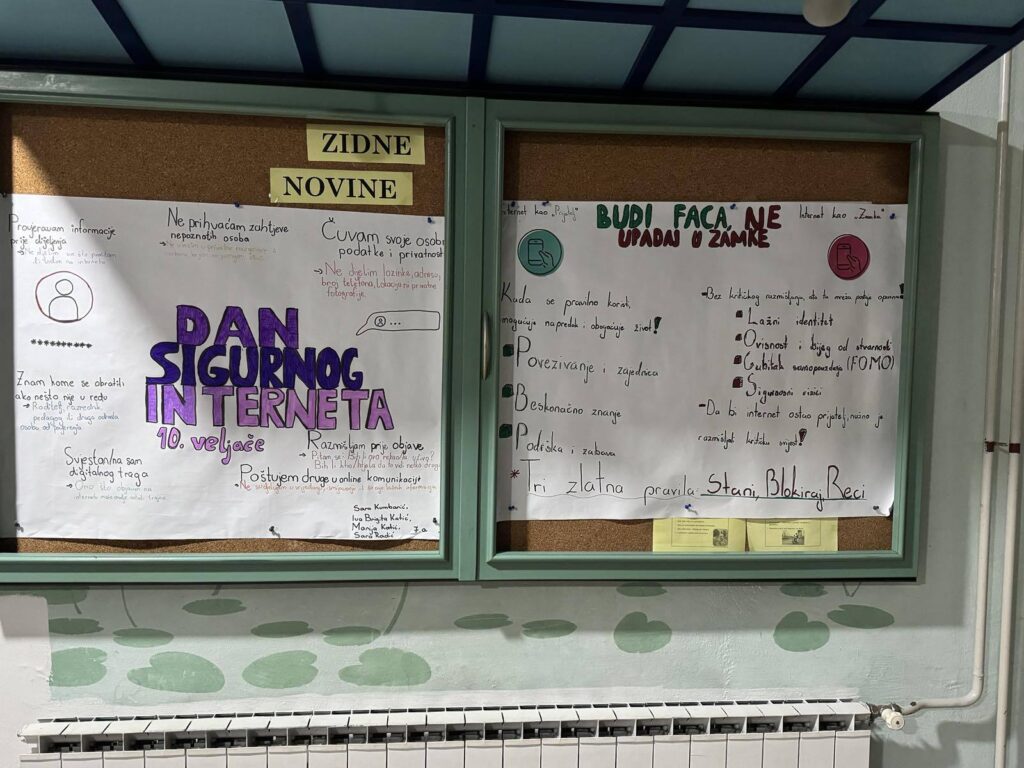 ZIDNE
NOVINE
Provjeravam informacije
prije dijeljenja
Ne prihvaćam zahtjeve
nepoznatih osoba
Čuvam svoje osob
podatke i privatnost
→ Ne dijelim lozinke, adresu,
broj telefona, lokaciju ni privatne
fotografije.
********
DAN
SIGURNOG
INTERNETA
10. veljače
Znam kome se obratiti
ako nešto nije u redu
→ Roditelj, razrednik,
pedagog ili druga odrasla
osoba od povjerenja
Svjestan/na sam
digitalnog traga
→ Ono što objavim na
internetu
Razmišljam prije objave
Poštujem druge u online komunikaciji
Sara Kumbarić,
Iva Brigita Katić,
Marija Katić,
Sara Radić 7.a
Internet kao "Prijatelj"
BUDI FACA, NE
UPADAJ U ZAMKE
Internet kao "Zamka"
Kada se pravilno koristi,
omogućuje napredak i obogaćuje život!
Povezivanje i zajednica
Beskonačno znanje
Podrška i zabava
-Bez kritičkog razmišljanja, ova mreža postaje opasna!
Lažni identitet
Ovisnost i bijeg od stvarnosti
Gubitak samopouzdanja (FOMO)
Sigurnosni rizici
-Da bi internet ostao prijatelj, nužno je
razmišljati kritičku svijest!
* Tri zlatna pravila Stani, Blokiraj, Reci